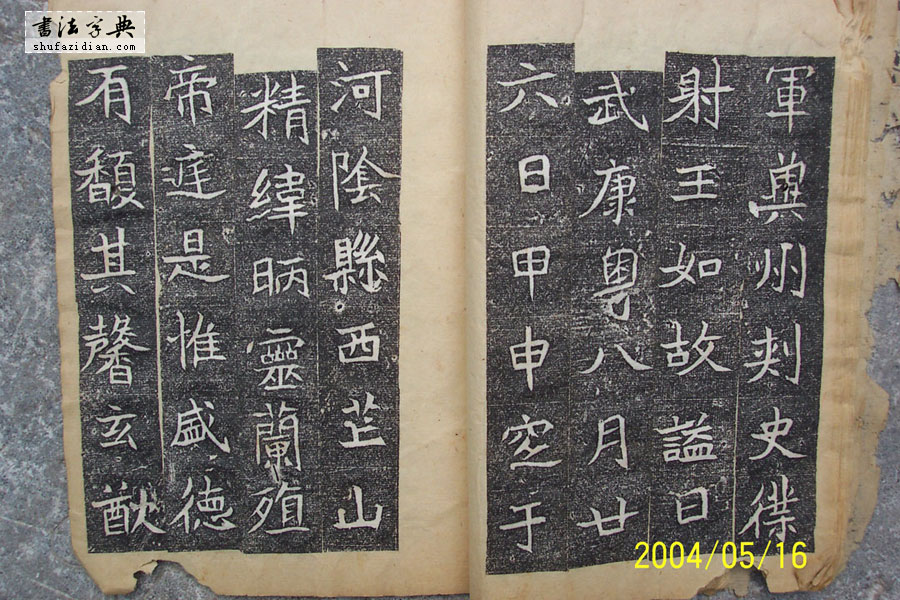 書法字典
shufazidian.com
軍與州刾史徲
射王如故謚曰
武康粤八月廿
六日甲申窆于
河陰縣西芒山
精緯昞靈蘭殖
帝逹是惟盛德
有馥其馨玄猷
2004/05/16